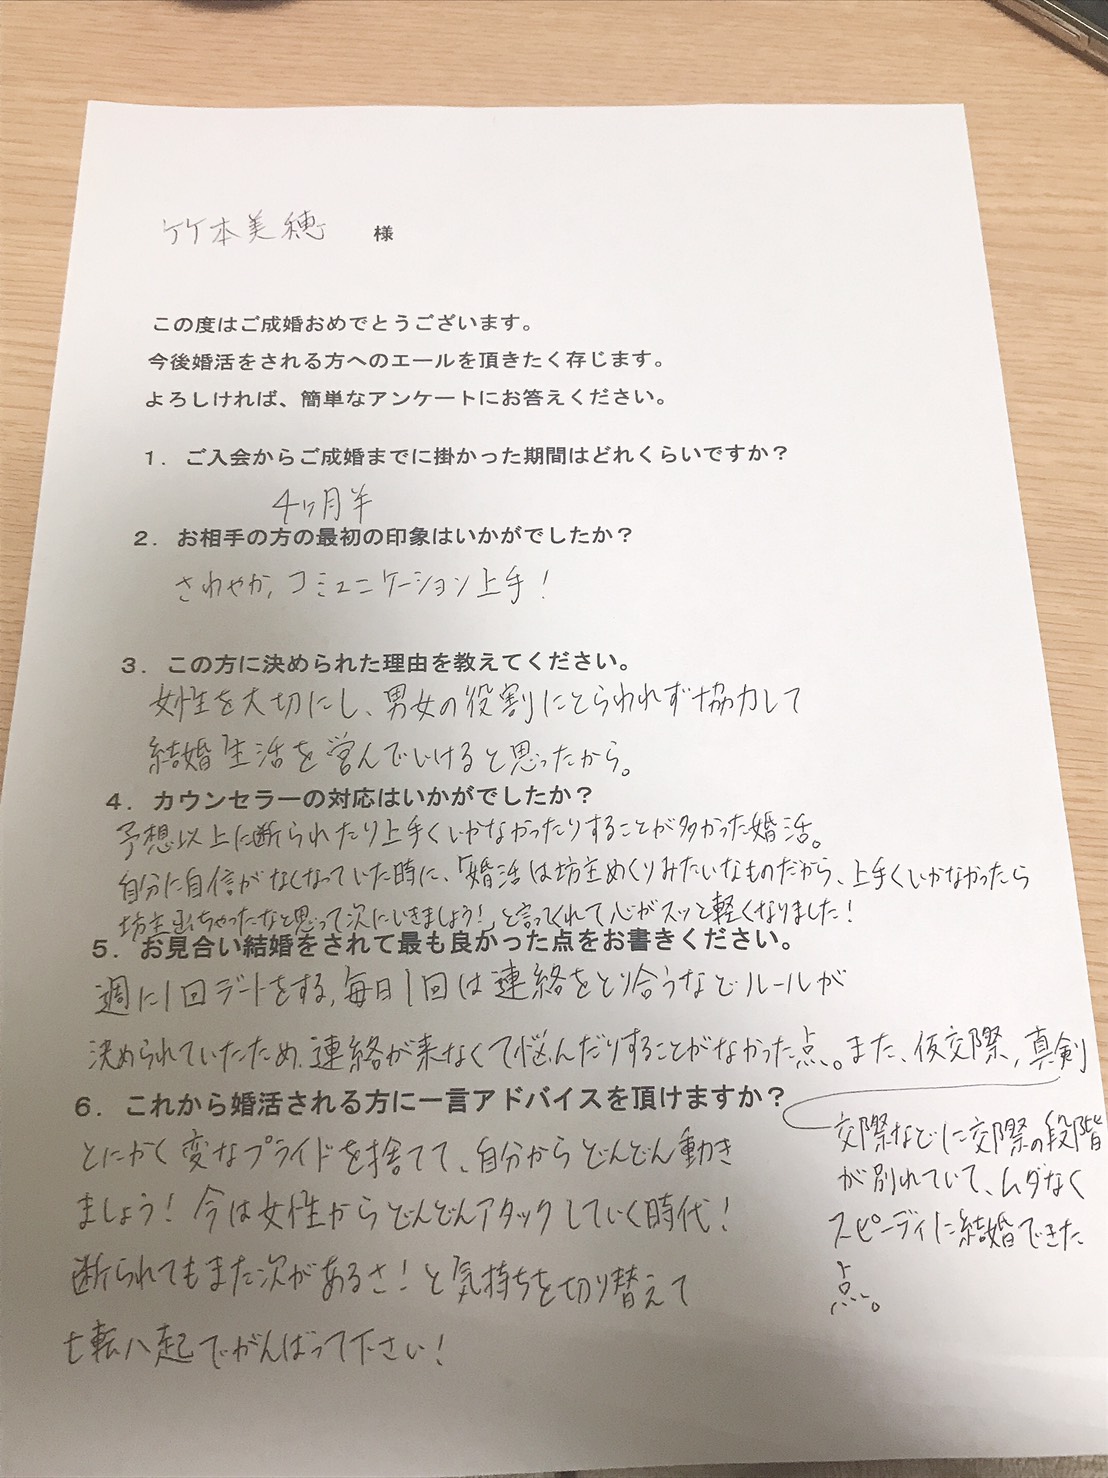 竹本美穂 様
この度はご成婚おめでとうございます。
今後婚活をされる方へのエールを頂きたく存じます。
よろしければ、簡単なアンケートにお答えください。
1. ご入会からご成婚までに掛かった期間はどれくらいですか?
4ヶ月半
2. お相手の方の最初の印象はいかがでしたか?
さわやか,コミュニケーション上手!
3. この方に決められた理由を教えてください。
女性を大切にし、男女の役割にとらわれず協力して
結婚生活を営んでいけると思ったから。
4. カウンセラーの対応はいかがでしたか?
予想以上に断られたり上手くいかなかったりすることが多かった婚活。
自分に自信がなくなっていた時に、「婚活は坊主めくりみたいなものだから、上手くいかなかったら
坊主出ちゃったなと思って次にいきましょう!」と言ってくれて心がスッと軽くなりました!
5. お見合い結婚をされて最も良かった点をお書きください。
週に1回デートをする,毎日1回は連絡をとり合うなどルールが
決められていたため,連絡が来なくて悩んだりすることがなかった点。また、仮交際,真剣
交際などに交際の段階
が別れていて、ムダなく
スピーディに結婚できた
点。
6. これから婚活される方に一言アドバイスを頂けますか?
とにかく変なプライドを捨てて、自分からどんどん動き
ましょう!今は女性からどんどんアタックしていく時代!
断られてもまた次があるさ!と気持ちを切り替えて
七転八起でがんばって下さい!